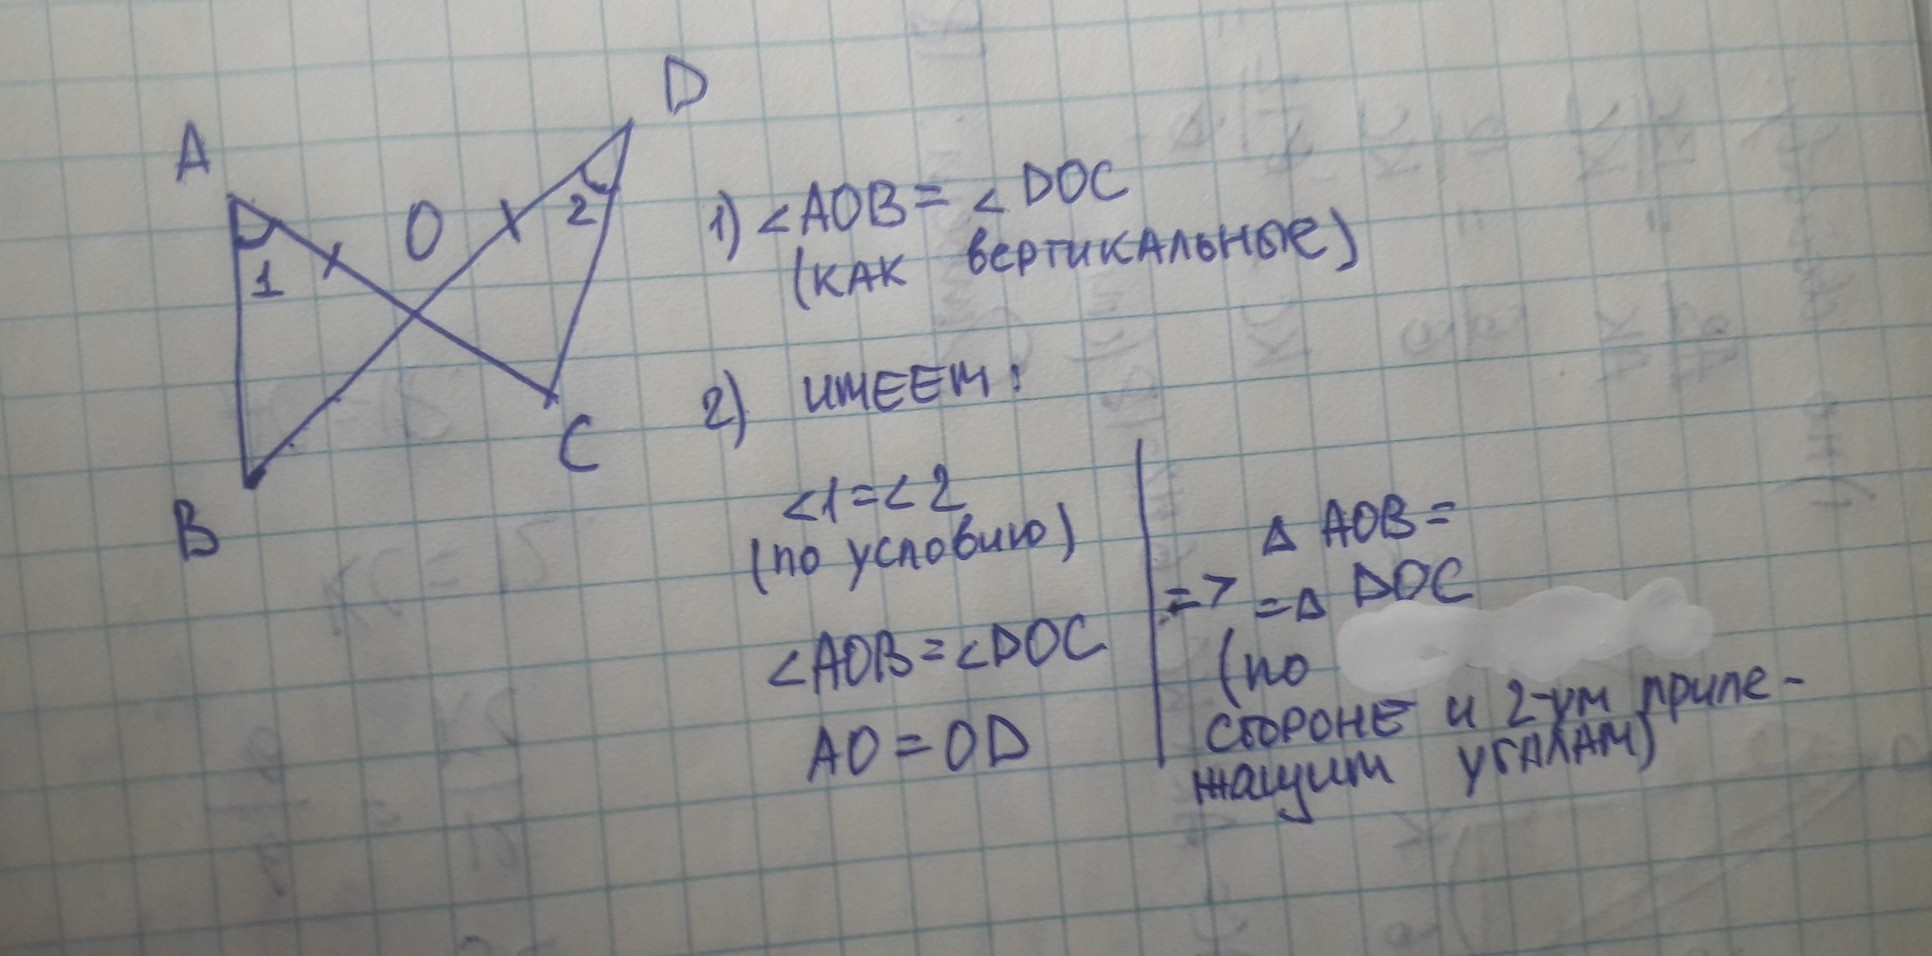 D
A
O
2
1
C
B
1) ∠AOB = ∠DOC
(как вертикальные)
2) имеем:
∠1 = ∠2
(по условию)
∠AOB = ∠DOC
AO = OD
=> Δ AOB =
= Δ DOC
(по
стороне и 2-ум приле-
жащим угалам)